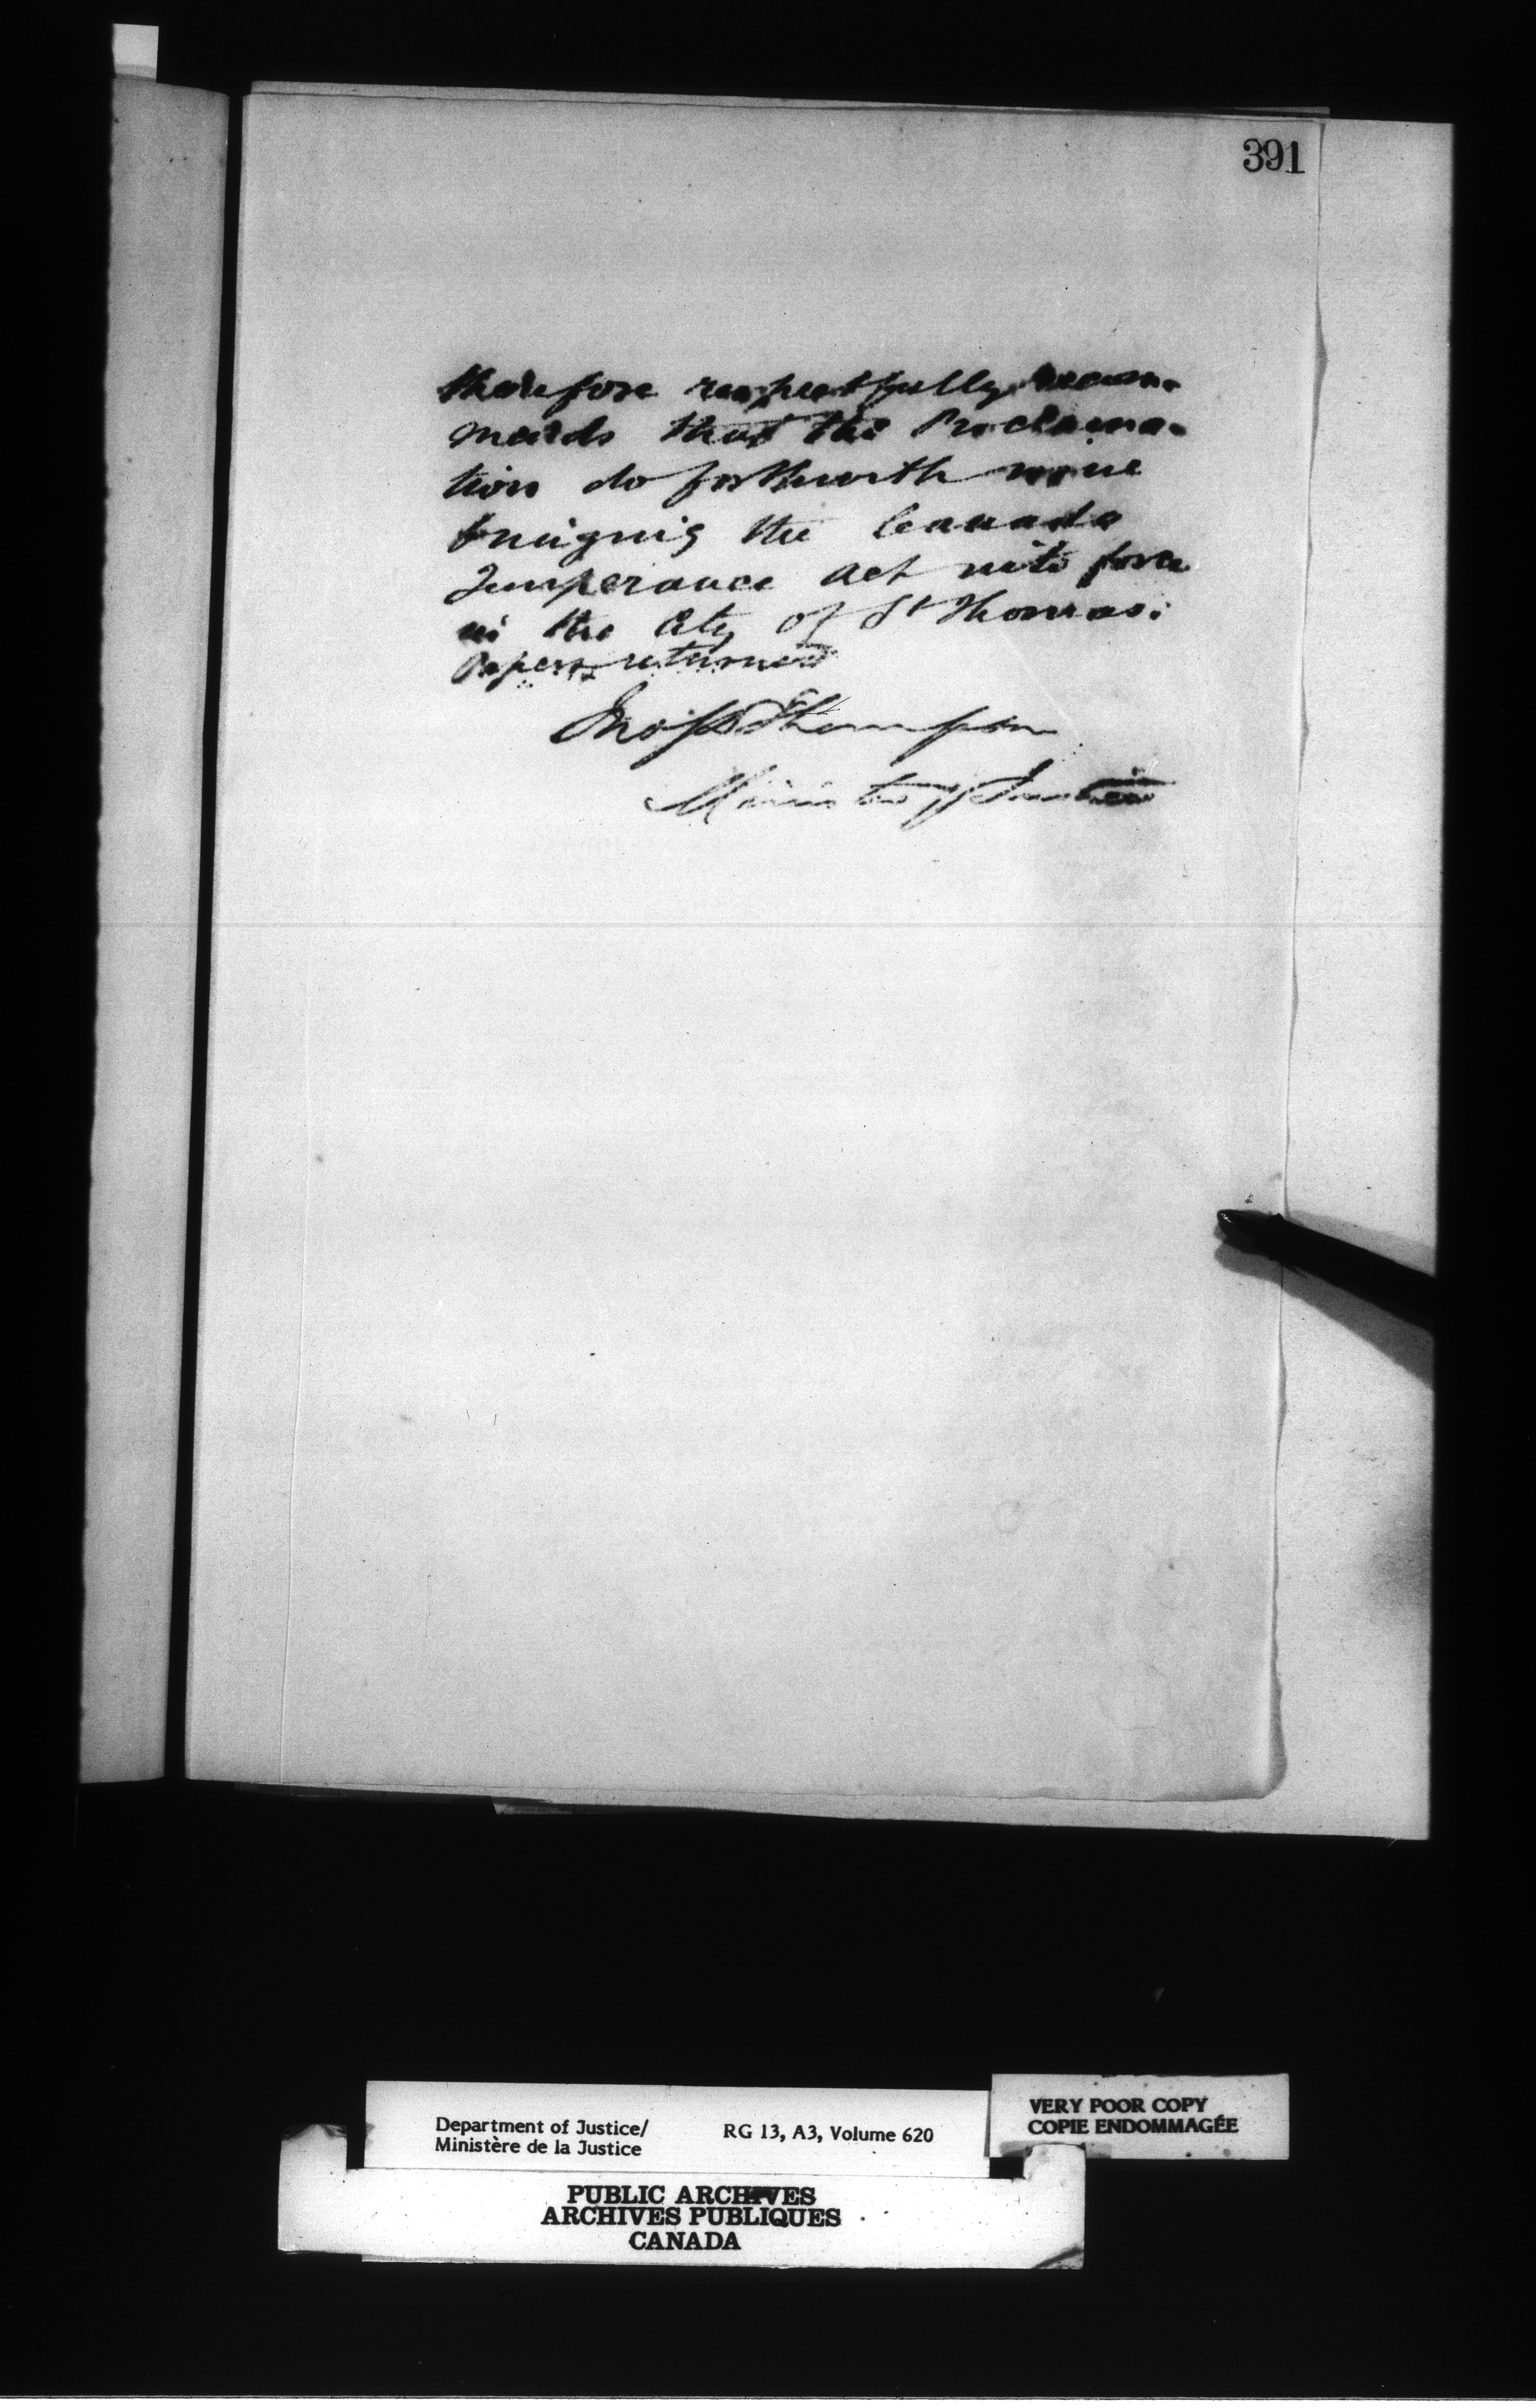 391
therefore respectfully recom-
mends that the Proclama-
tion do forthwith issue
bringing the Canada
Temperance Act into force
in the City of St Thomas.
Papers returned
Jno S D Thompson
Minister of Justice
Department of Justice/
Ministère de la Justice
RG 13, A3, Volume 620
VERY POOR COPY
COPIE ENDOMMAGÉE
PUBLIC ARCHIVES
ARCHIVES PUBLIQUES
CANADA